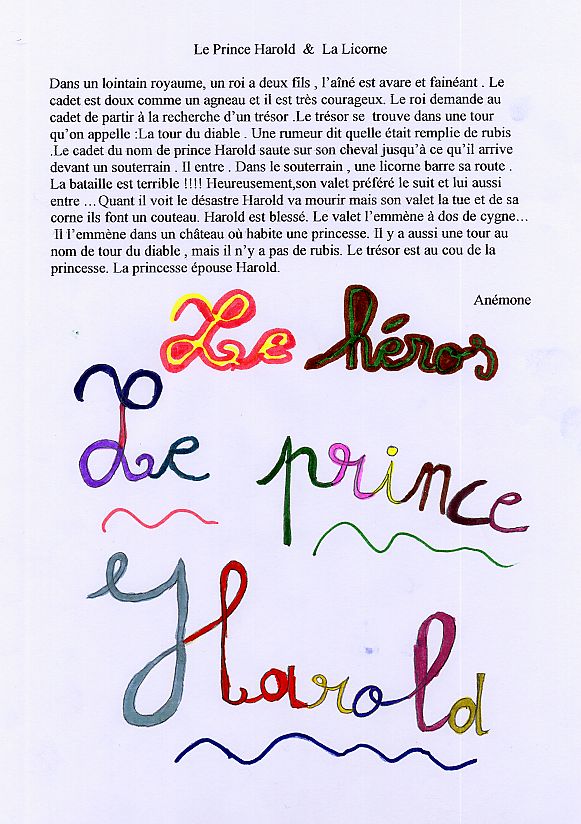 Le Prince Harold & La Licorne
Dans un lointain royaume, un roi a deux fils , l'aîné est avare et fainéant . Le
cadet est doux comme un agneau et il est très courageux. Le roi demande au
cadet de partir à la recherche d'un trésor .Le trésor se trouve dans une tour
qu'on appelle :La tour du diable . Une rumeur dit quelle était remplie de rubis
.Le cadet du nom de prince Harold saute sur son cheval jusqu'à ce qu'il arrive
devant un souterrain . Il entre . Dans le souterrain , une licorne barre sa route .
La bataille est terrible !!!! Heureusement,son valet préféré le suit et lui aussi
entre …Quant il voit le désastre Harold va mourir mais son valet la tue et de sa
corne ils font un couteau. Harold est blessé. Le valet l'emmène à dos de cygne…
Il l'emmène dans un château où habite une princesse. Il y a aussi une tour au
nom de tour du diable , mais il n'y a pas de rubis. Le trésor est au cou de la
princesse. La princesse épouse Harold.
Anémone
Le héros
Le prince
Harold